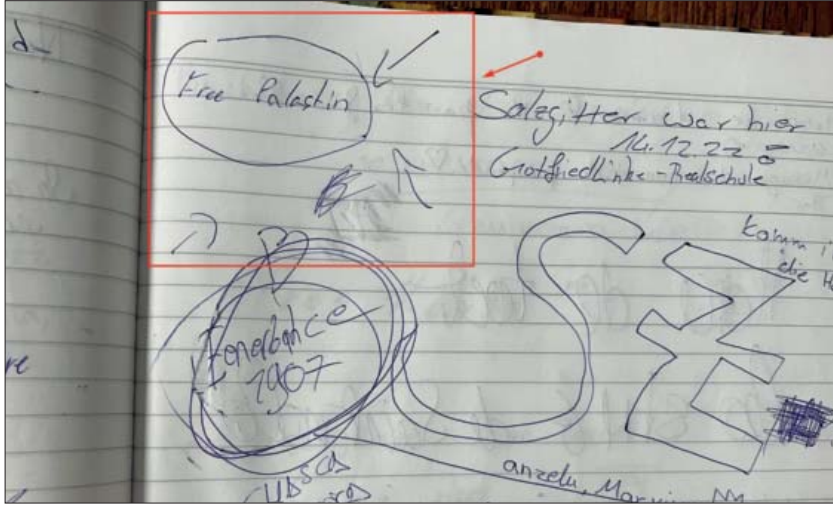 d-
Free Palastin
Salzgitter war hier
14.12.22
Gotfriedlinke-Realschule
komm i
die H
Fenerbahce
1907
re
anzelu, Marvin